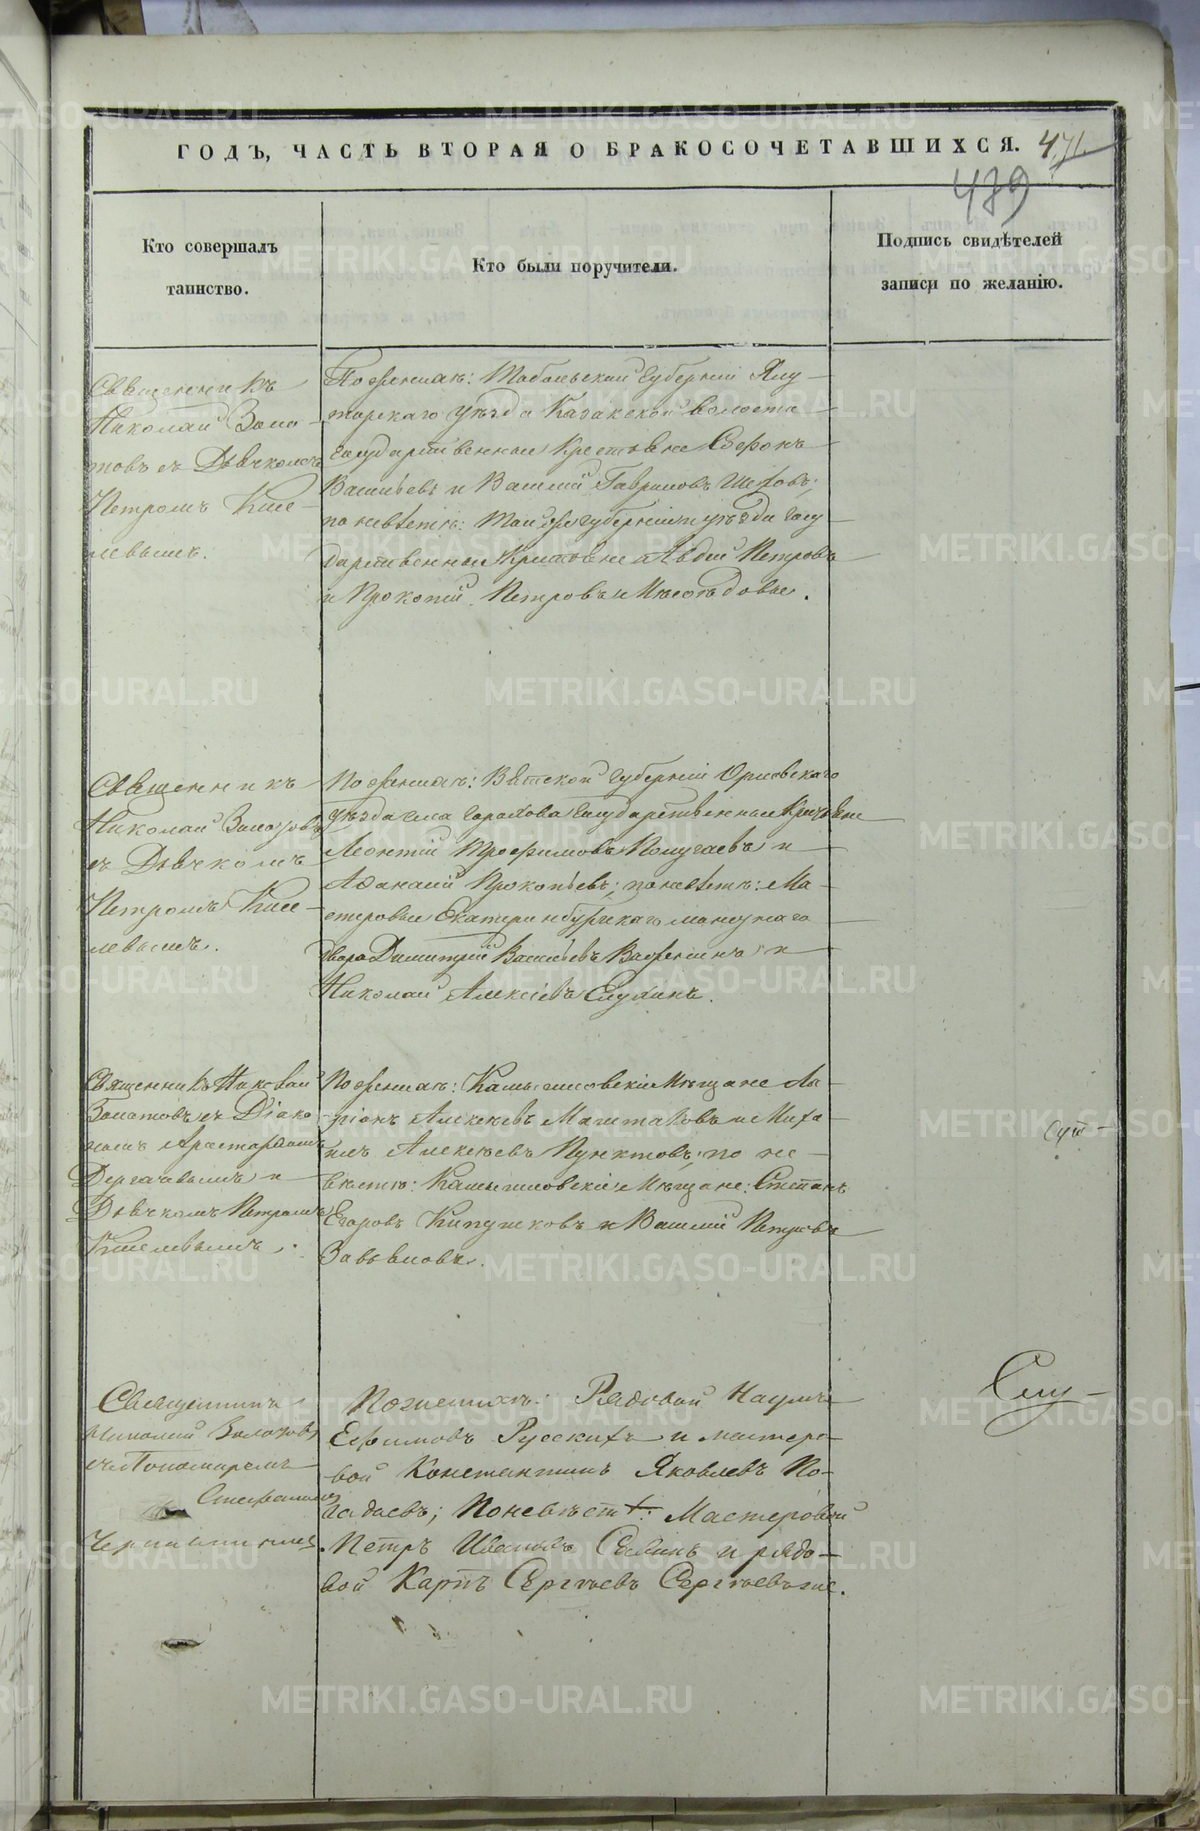 ГОДЪ, ЧАСТЬ ВТОРАЯ О БРАКОСОЧЕТАВШИХСЯ. 471.
479
Кто совершалъ
таинство.
Кто были поручители.
Подпись свидѣтелей
записи по желанію.
Священникъ
Николай Золо-
товъ съ Дьячкомъ
Петромъ Кисе-
левымъ.
По женихѣ: Тобольской Губерніи Ялу-
торскаго уѣзда волости
Государственные Крестьяне
Васильевъ и Василій Гавриловъ
по невѣстѣ: Той же губерніи и уѣзда Госу-
дарственные Крестьяне Авдей Петровъ
и Прокопій Петровъ
Священникъ
Николай Золотовъ
съ Дьячкомъ
Петромъ Кисе-
левымъ.
По женихѣ: Вятской губерніи Орловскаго
уѣзда села Государственные Крестьяне
Леонтій Трофимовъ и
Афанасій Прокопьевъ; по невѣстѣ: Ма-
стеровые Екатеринбургскаго монетнаго
двора Димитрій Васильевъ и
Николай Алексѣевъ
Священникъ Николай
Золотовъ съ Діако-
номъ Аристархомъ
Дергачевымъ и
Дьячкомъ Петромъ
Киселевымъ.
По женихѣ: Камышловскіе Мѣщане Ла-
ріонъ Алексѣевъ и Миха-
илъ Алексѣевъ Пунктовъ; по не-
вѣстѣ: Камышловскіе Мѣщане: Степанъ
Егоровъ и Василій Петровъ
Завьяловъ.
Священникъ
Николай Золотовъ
съ Пономаремъ
Стефаномъ
По женихѣ: Рядовой Наумъ
Ефимовъ Русскихъ и мастеро-
вой Константинъ Яковлевъ По-
гадаевъ; По невѣстѣ: Мастеровой
Петръ Ивановъ и рядо-
вой Карпъ Сергѣевъ Сергѣевыхъ.
METRIKI.GASO-URAL.RU